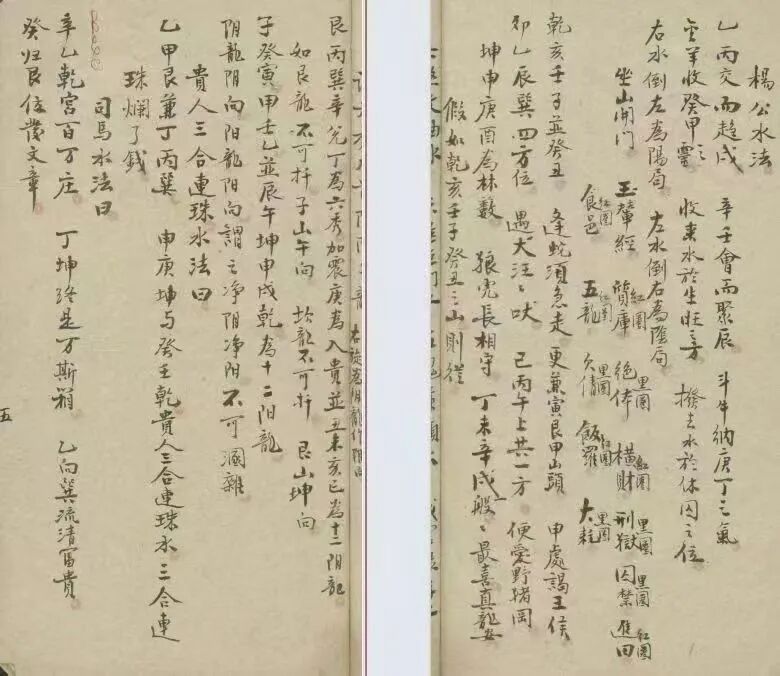 楊公水法
乙丙交而趋戌 辛壬會而聚辰 斗牛納庚丁之氣
金羊收癸甲靈 收来水於生旺之方 撥去水於休囚之位
右水倒左為陽局 左水倒右為陰局
坐山開門 玉輦經 質庫 红圈 绝体 黑圈 横財 红圈 刑獄 黑圈 囚禁 黑圈 進田 红圈
食邑 红圈 五龍 欠债 黑圈 飯羅 红圈 大耗 黑圈
乾亥壬子並癸丑 逢蛇須急走 更兼寅艮甲山頭 申處謁王侯
卯乙辰巽四方位 遇犬汪ミ吠 巳丙午上共一方 便爱野猪岡
坤申庚酉為林数 狼虎長相守 丁未辛戌般ミ 最喜真龍安
假如乾亥壬子癸丑之山則從
艮丙巽辛兌丁為六秀加震庚為八貴並丑未亥巳為十二阴龍
如艮龍不可扦子山午向 坎龍不可扦艮山坤向
子癸寅甲壬乙並辰午坤申戌乾為十二阳龍
阴龍阴向阳龍阳向謂之净阴净阳不可溷雜
貴人三合連珠水法曰
乙甲艮兼丁丙巽 申庚坤与癸壬乾貴人三合連珠水 三合連
珠爛了錢
司馬水法曰
辛乙乾宫百丁庄 丁坤終是万斯箱 乙向巽流清富貴
癸归艮位發文章
五